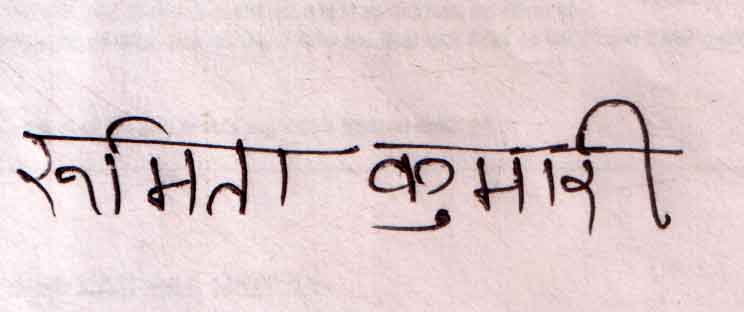 रूमिता कुमारी